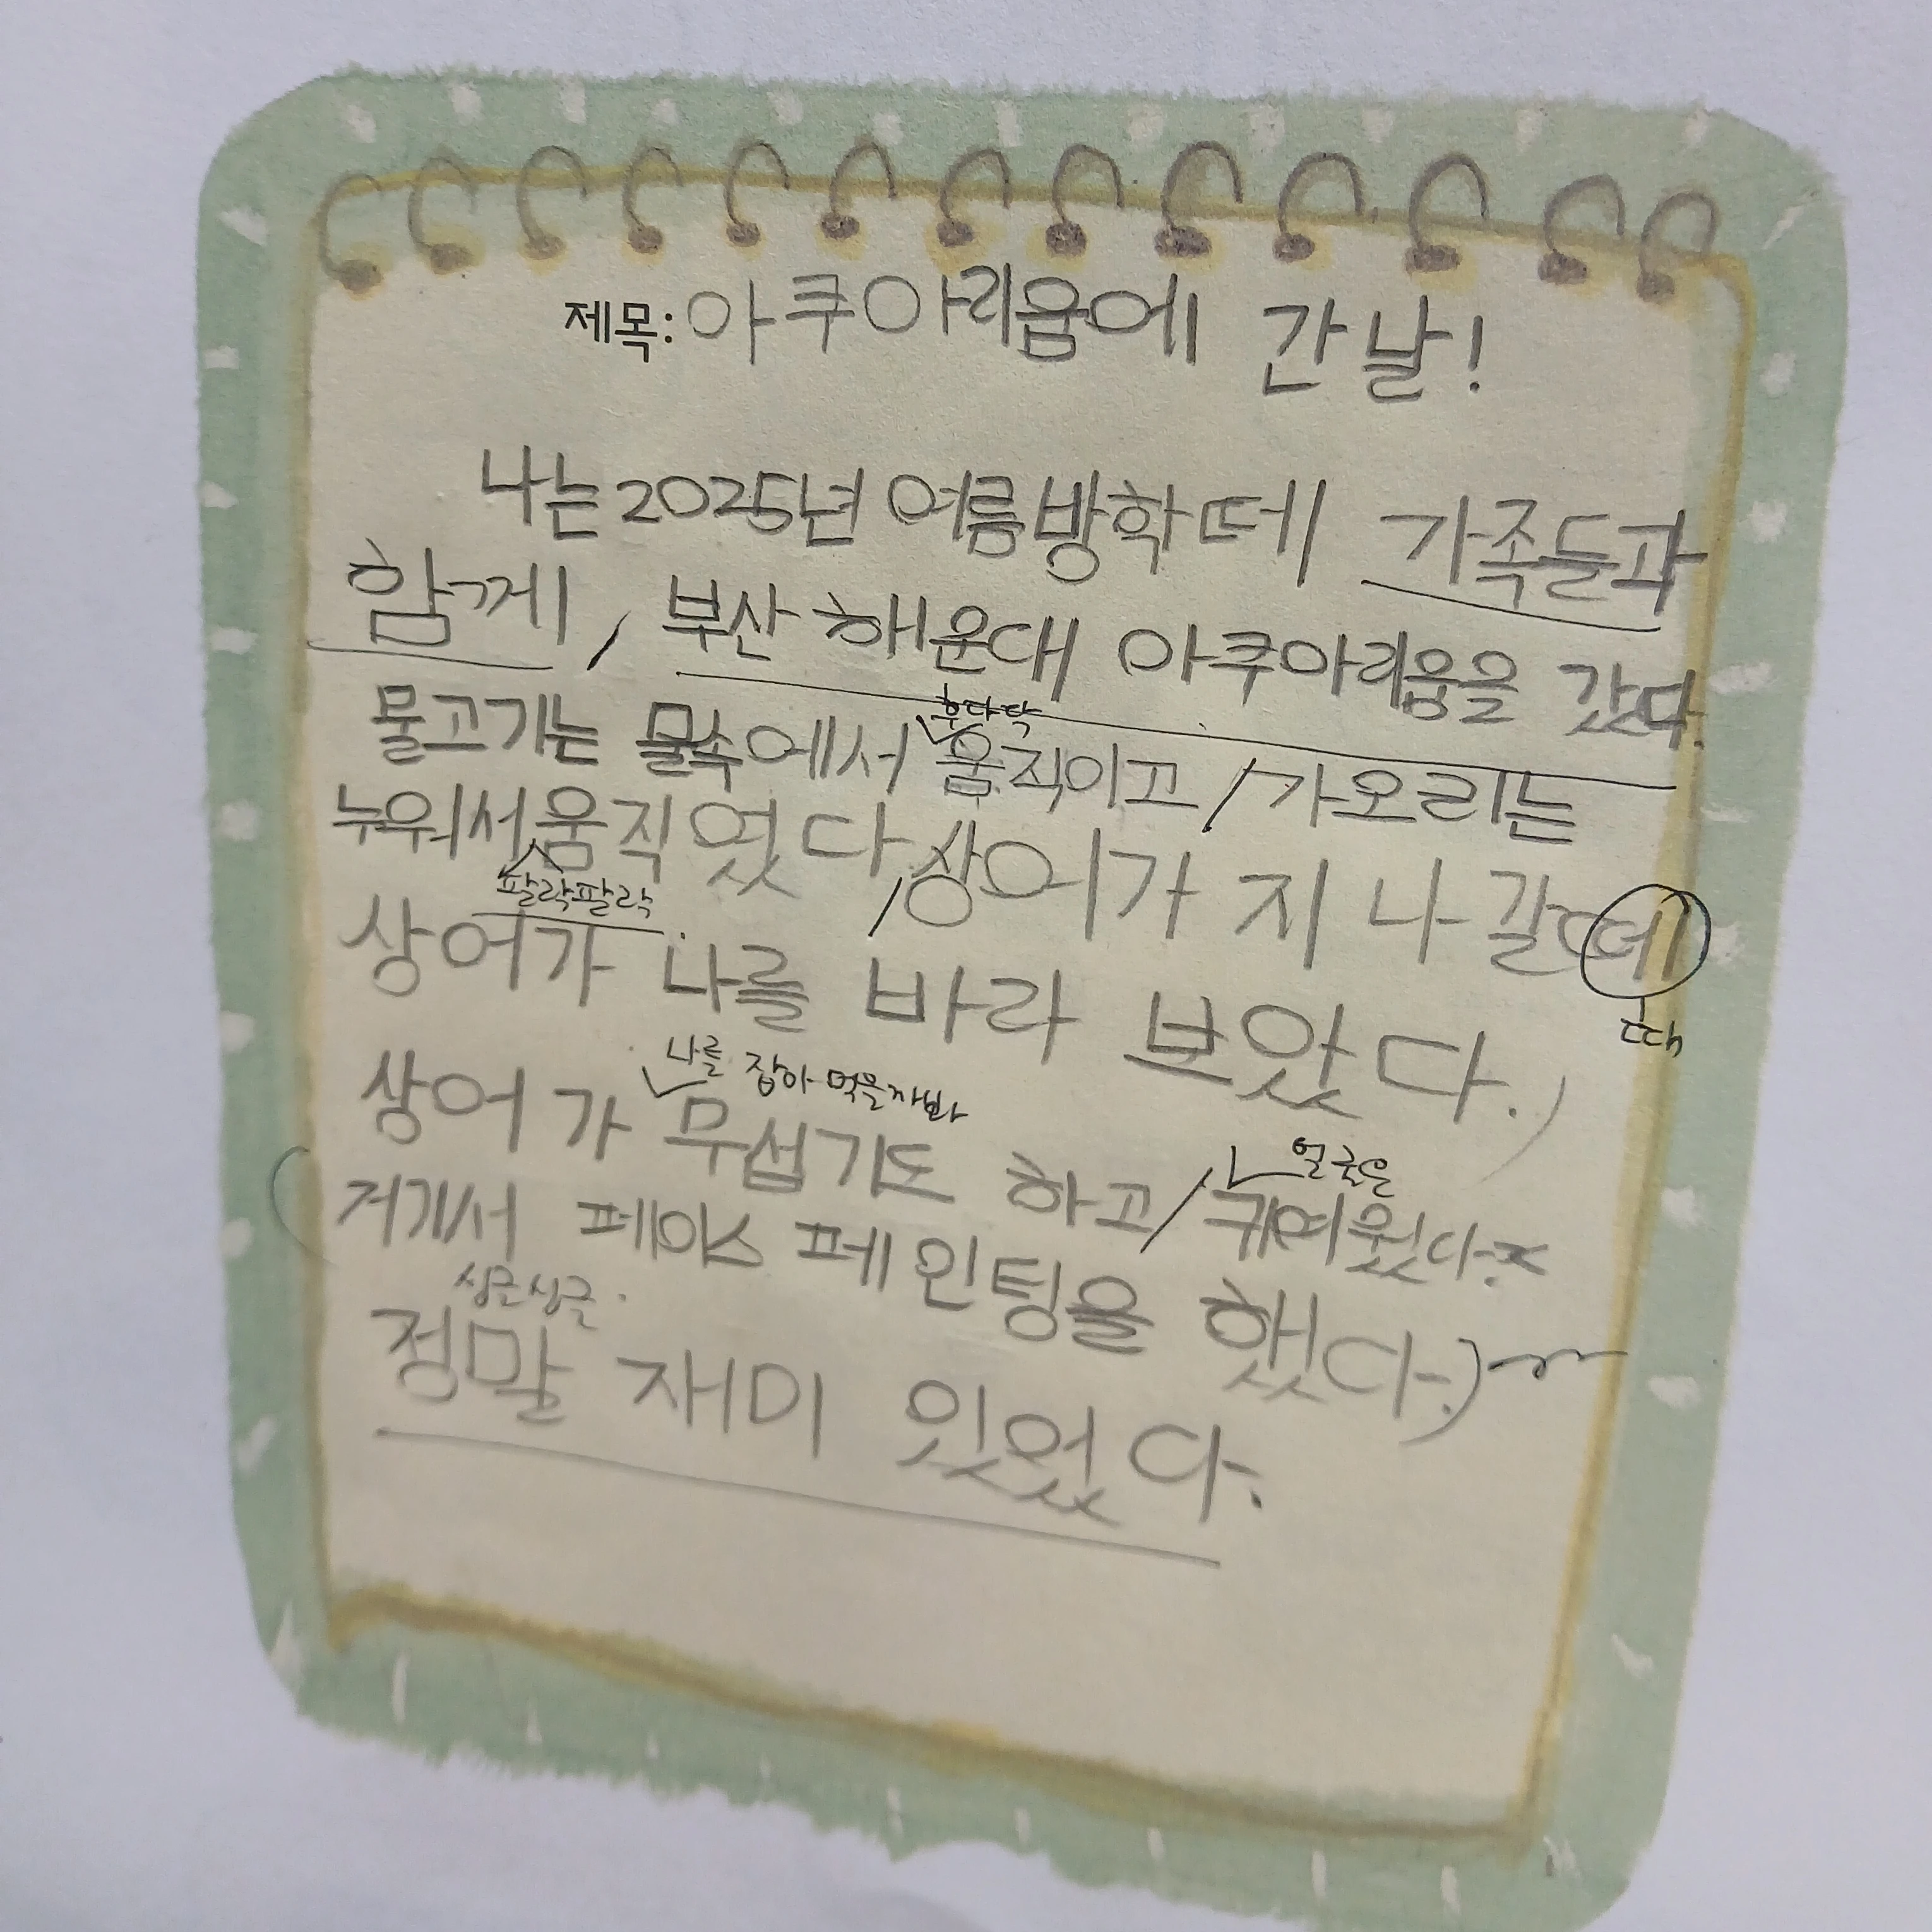 제목: 아쿠아리움에 간날!
나는 2025년 여름방학 떼 가족들과
함께 / 부산 해운대 아쿠아리움을 갔다.
후다닥
물고기는 물속에서 움직이고 / 가오리는
누워서 움직였다 / 상어가 지나갈떼
팔락팔락
상어가 나를 바라 보았다.)
때
나를 잡아 먹을까봐
상어가 무섭기도 하고 / 귀여웠다.
얼굴은
(거기서 페이스 페인팅을 했다.)
싱글싱글
정말 재미 있었다.